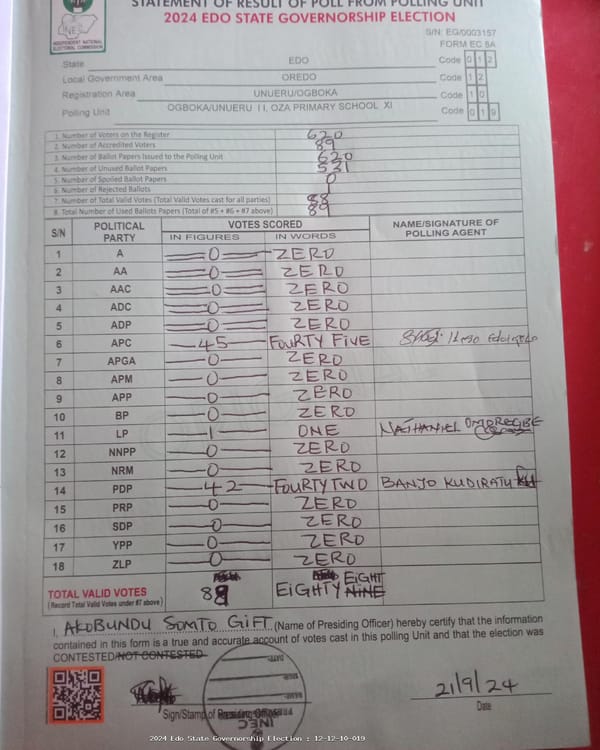 STATEMENT OF RESULT OF POLL FROM POLLING UNIT
2024 EDO STATE GOVERNORSHIP ELECTION
INEC
INDEPENDENT NATIONAL
ELECTORAL COMMISSION
S/N: EG/0003157
FORM EC 8A
State EDO Code 0 1 2
Local Government Area OREDO Code 1 2
Registration Area UNUERU/OGBOKA Code 1 0
Polling Unit OGBOKA/UNUERU I I, OZA PRIMARY SCHOOL XI Code 0 1 9
1. Number of Voters on the Register 620
2. Number of Accredited Voters 89
3. Number of Ballot Papers Issued to the Polling Unit 620
4. Number of Unused Ballot Papers 531
5. Number of Spoiled Ballot Papers 0
6. Number of Rejected Ballots 1
7. Number of Total Valid Votes (Total Valid Votes cast for all parties) 88
8. Total Number of Used Ballots Papers (Total of #5 + #6 + #7 above) 89
S/N POLITICAL PARTY VOTES SCORED NAME/SIGNATURE OF POLLING AGENT
IN FIGURES IN WORDS
1 A 0 ZERO
2 AA 0 ZERO
3 AAC 0 ZERO
4 ADC 0 ZERO
5 ADP 0 ZERO
6 APC 45 FOURTY FIVE
7 APGA 0 ZERO
8 APM 0 ZERO
9 APP 0 ZERO
10 BP 0 ZERO
11 LP 1 ONE NATHANIEL OMOREGBE
12 NNPP 0 ZERO
13 NRM 0 ZERO
14 PDP 42 FOURTY TWO BANJO KUDIRATU
15 PRP 0 ZERO
16 SDP 0 ZERO
17 YPP 0 ZERO
18 ZLP 0 ZERO
TOTAL VALID VOTES 88 EIGHTY EIGHT NINE
(Record Total Valid Votes under #7 above)
I, AKOBUNDU SOMTO GIFT (Name of Presiding Officer) hereby certify that the information
contained in this form is a true and accurate account of votes cast in this polling Unit and that the election was
CONTESTED/NOT CONTESTED
21/9/24
Sign/Stamp of Presiding Officer Date
INEC
2024 Edo State Governorship Election : 12-12-10-019